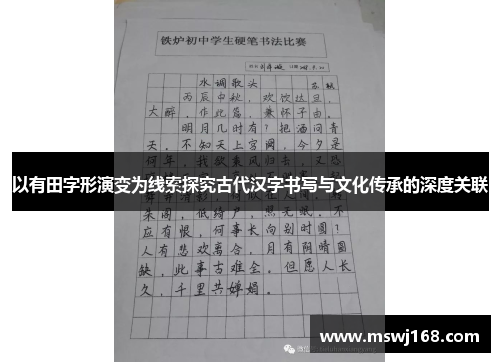 铁炉初中学生硬笔书法比赛
水调歌头
苏轼
丙辰中秋，欢饮达旦，
大醉，作此篇，兼怀子由。
明月几时有？把酒问青
天。不知天上宫阙，今夕是
何年。我欲乘风归去，又恐
以有田字形演变为线索探究古代汉字书写与文化传承的深度关联
朱阁，低绮户，照无眠。不
应有恨，何事长向别时圆？
人有悲欢离合，月有阴晴圆
缺，此事古难全。但愿人长
久，千里共婵娟。
www.mswj168.com